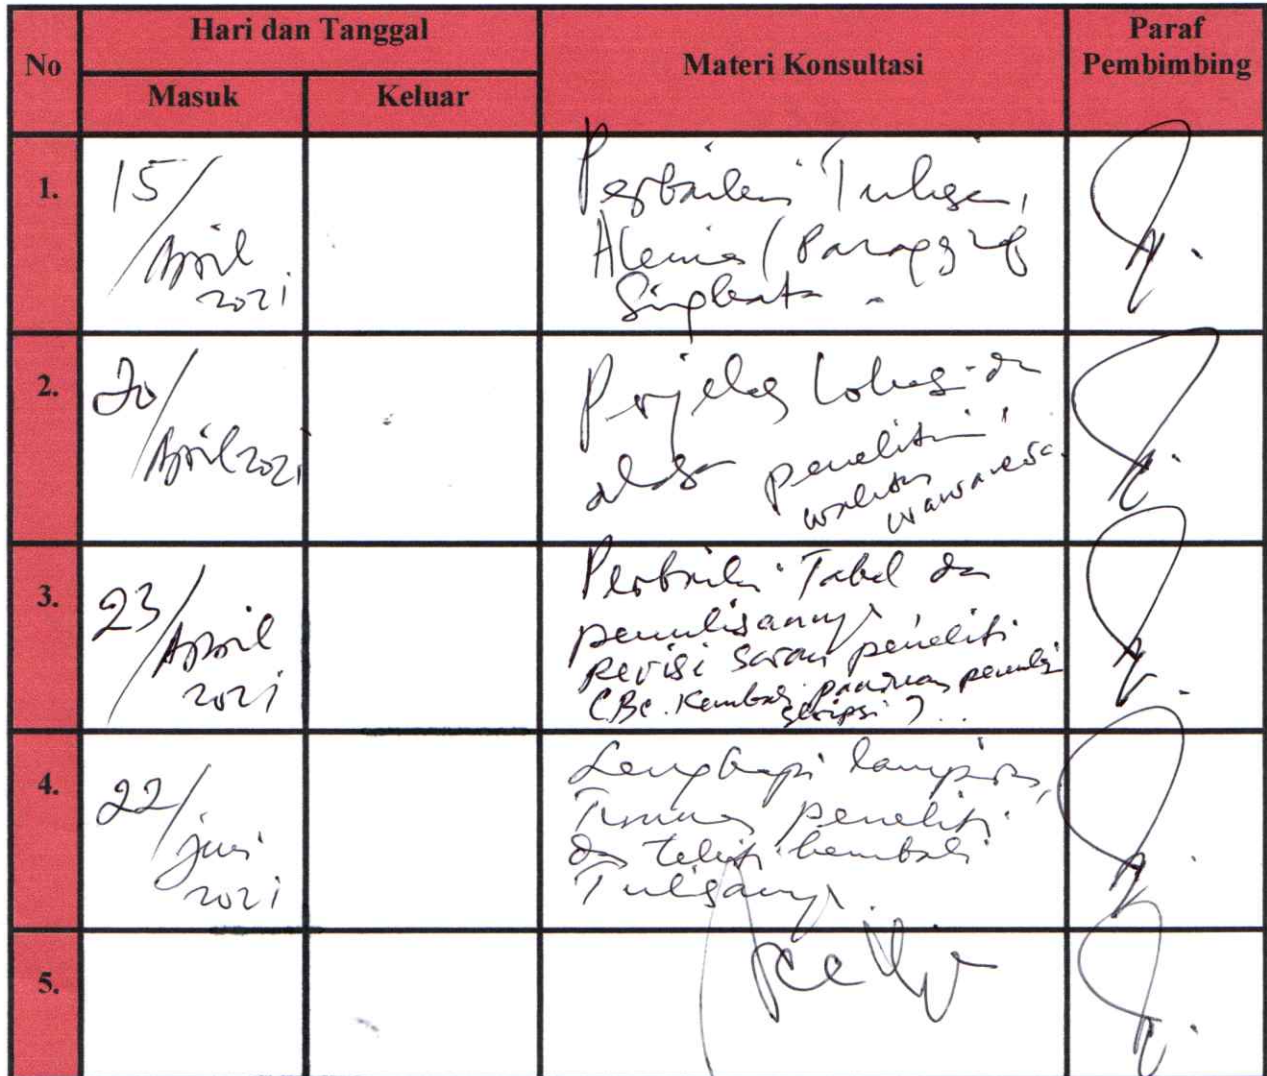 No
Hari dan Tanggal
Masuk
Keluar
Materi Konsultasi
Paraf
Pembimbing
1.
15/
April
2021
Perbaiki Tulisan,
Alenia/Paragraf
Singkat.
2.
20/
April 2021
Perjelas Lokus dan
penelitian,
waktu
wawancara.
3.
23/
April
2021
Perbaiki Tabel dan
penulisannya
Revisi saran peneliti
Kembali panduan penulis
skripsi
4.
22/
Juni
2021
Lengkapi lampiran,
penelitian
dan teliti kembali
Tulisannya
5.